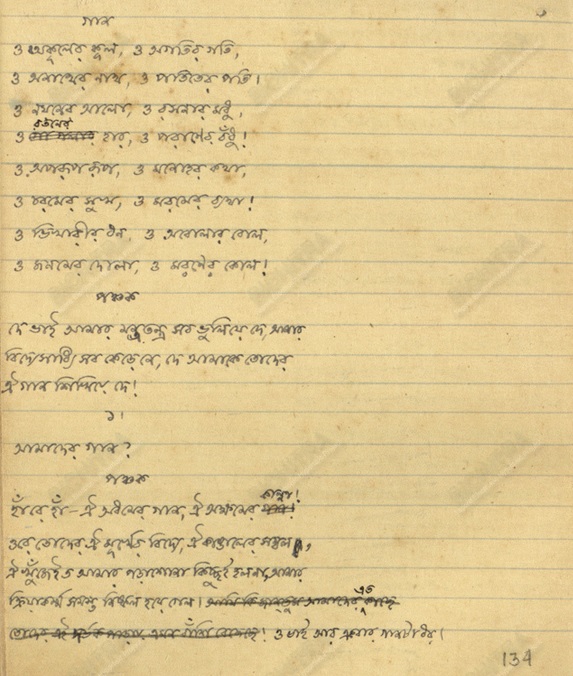 গান
ও অকূলের কূল, ও অগতির গতি,
ও অনাথের নাথ, ও পতিতের পতি।
ও নয়নের আলো, ও রসনার মধু,
রতনের
ও হার, ও পরাণের বঁধু!
ও অপরূপ রূপ, ও মনোহর কথা,
ও চরমের সুখ, ও মরমের ব্যথা!
ও ভিখারীর ধন, ও অবোলার বোল,
ও জনমের দোলা, ও মরণের কোল!
পঞ্চক
দে ভাই আমার মন্ত্রতন্ত্র সব ভুলিয়ে দে, আমার
বিদ্যেসাধ্যি সব কেড়ে নে, দে আমাকে তোদের
ঐ গান শিখিয়ে দে!
১।
আমাদের গান?
পঞ্চক
কান্না!
হাঁরে হাঁ— ঐ অধমের গান, ঐ অক্ষমের
ওরে তোদের ঐ মূর্খের বিদ্যে, ঐ কাঙালের সম্বল,
ঐ খুঁজেইত আমার পড়াশোনা কিছুই হলনা, আমার
ক্রিয়াকর্ম্ম সমস্ত নিষ্ফল হয়ে গেল!
ও ভাই আর একবার গানটা ধর।
134